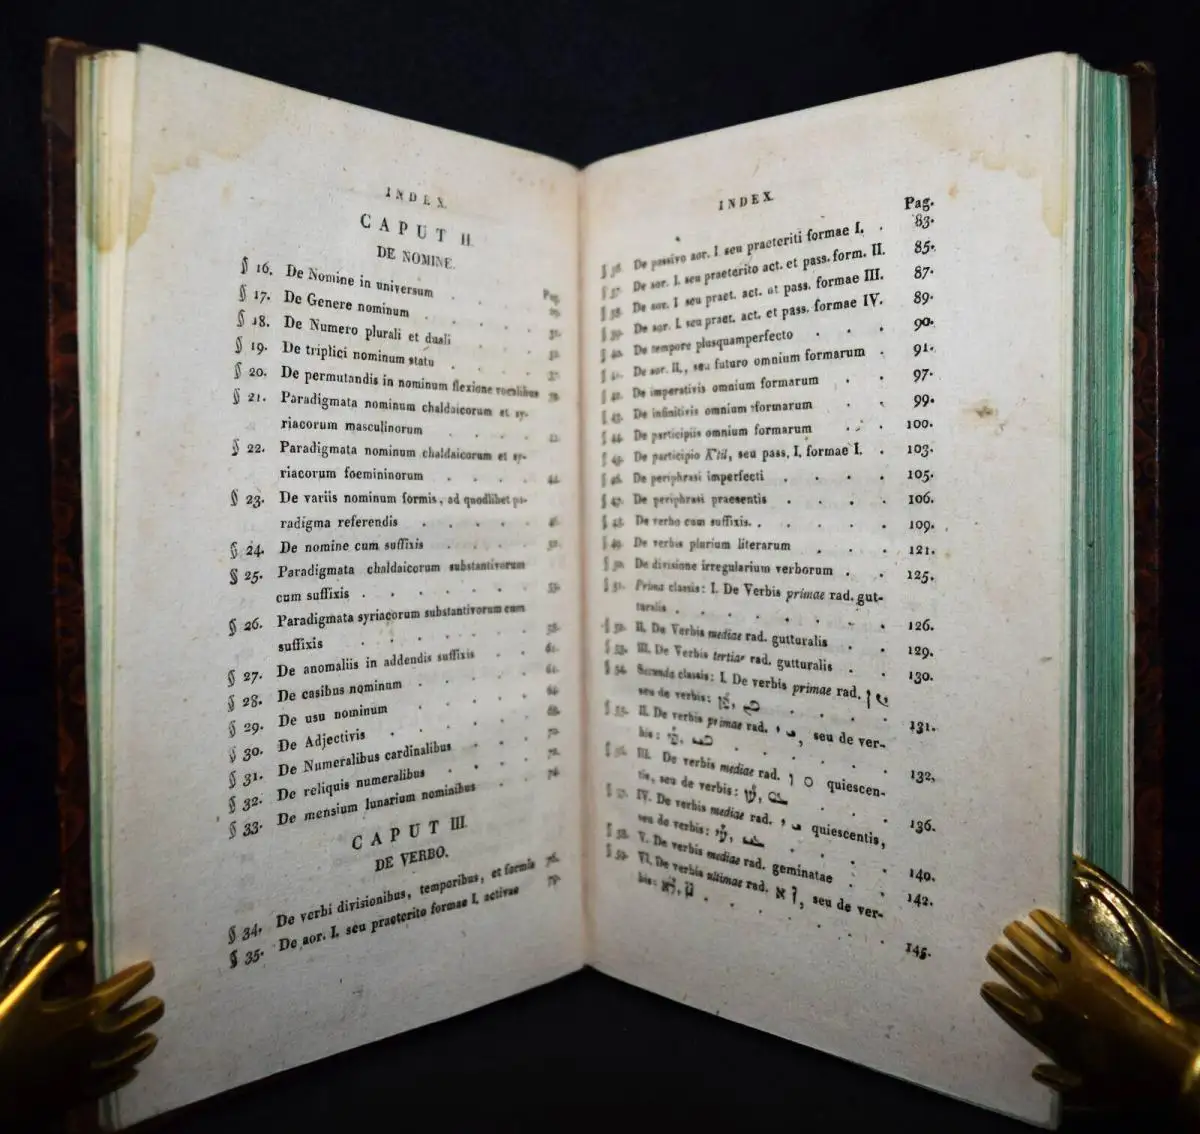 INDEX.
CAPUT II.
DE NOMINE.
Pag.
§ 16. De Nomine in universum . .
§ 17. De Genere nominum . . . .
§ 18. De Numero plurali et duali . .
§ 19. De triplici nominum statu . . .
§ 20. De permutandis in nominum flexione vocalibus
§ 21. Paradigmata nominum chaldaicorum et sy-
riacorum masculinorum . . . .
§ 22. Paradigmata nominum chaldaicorum et sy-
riacorum foemininorum . . . . 44.
§ 23. De variis nominum formis, ad quodlibet pa-
radigma referendis . . . . .
§ 24. De nomine cum suffixis . . . .
§ 25. Paradigmata chaldaicorum substantivorum
cum suffixis . . . . . .
§ 26. Paradigmata syriacorum substantivorum cum
suffixis . . . . . .
§ 27. De anomaliis in addendis suffixis . . 61.
§ 28. De casibus nominum . . . .
§ 29. De usu nominum . . . .
§ 30. De Adjectivis . . . .
§ 31. De Numeralibus cardinalibus . . .
§ 32. De reliquis numeralibus . . . .
§ 33. De mensium lunarium nominibus . .
CAPUT III.
DE VERBO.
§ 34. De verbi divisionibus, temporibus, et formis 76.
§ 35. De aor. I. seu praeterito formae I. activae 79.
INDEX.
Pag.
§ 36. De passivo aor. I seu praeteriti formae I. . 83.
§ 37. De aor. I. seu praeterito act. et pass. form. II. 85.
§ 38. De aor. I seu praet. act. et pass. formae III. 87.
§ 39. De aor. I. seu praet. act. et pass. formae IV. 89.
§ 40. De tempore plusquamperfecto . . . 90.
§ 41. De aor. II., seu futuro omnium formarum . 91.
§ 42. De imperativis omnium formarum . . 97.
§ 43. De infinitivis omnium formarum . . 99.
§ 44. De participiis omnium formarum . . . 100.
§ 45. De participio K'til, seu pass. I. formae I. . 103.
§ 46. De periphrasi imperfecti . . . . 105.
§ 47. De periphrasi praesentis . . . . 106.
§ 48. De verbo cum suffixis. . . . . 109.
§ 49. De verbis plurium literarum . . . 121.
§ 50. De divisione irregularium verborum . . 125.
§ 51. Prima classis: I. De Verbis primae rad. gut-
turalis . . . . . . . 126.
§ 52. II. De Verbis mediae rad. gutturalis . . 129.
§ 53. III. De Verbis tertiae rad. gutturalis . . 130.
§ 54. Secunda classis: I. De verbis primae rad. נ ܢ
seu de verbis: . . . . 131.
§ 55. II. De verbis primae rad. י ܝ, seu de ver-
bis: . . . . 132.
§ 56. III. De verbis mediae rad. ו ܘ quiescen-
tis, seu de verbis: . . . 136.
§ 57. IV. De verbis mediae rad. י ܝ quiescentis,
seu de verbis: . . . 140.
§ 58. V. De verbis mediae rad. geminatae . . 142.
§ 59. VI. De verbis ultimae rad. א ן, seu de ver-
bis: . . . . . 145.